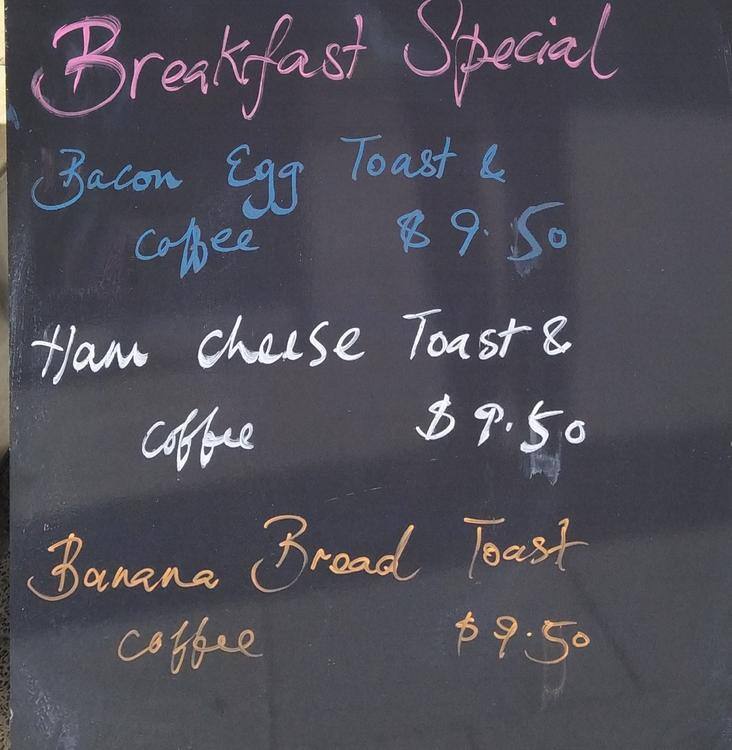 Breakfast Special
Bacon Egg Toast &
coffee $9.50
Ham cheese Toast &
coffee $9.50
Banana Bread Toast
coffee $9.50